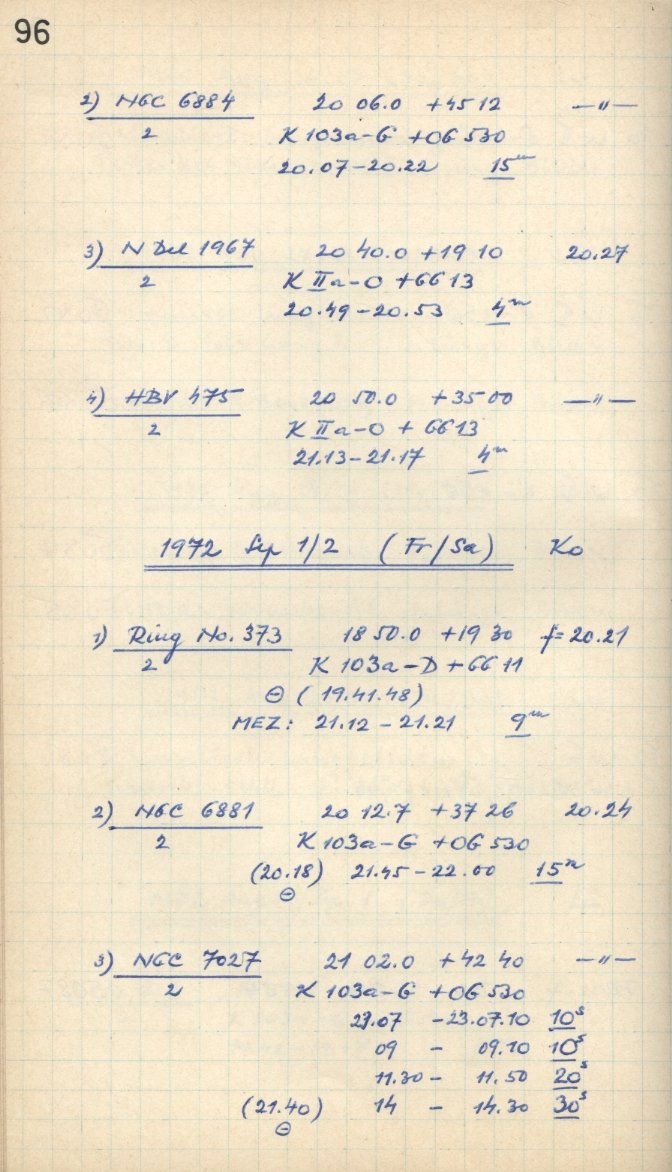 96
2) NGC 6884 20 06.0 +45 12 —〃—
2 K 103a-G +OG 530
20.07-20.22 15m
3) N Del 1967 20 40.0 +19 10 20.27
2 K IIa-O +GG 13
20.49-20.53 4m
4) HBV 475 20 50.0 +35 00 —〃—
2 K IIa-O + GG 13
21.13-21.17 4m
1972 Sep 1/2 (Fr/Sa) Ko
1) Ring No. 373 18 50.0 +19 30 f=20.21
2 K 103a-D +GG 11
⊖ (19.41.48)
MEZ: 21.12 - 21.21 9m
2) NGC 6881 20 12.7 +37 26 20.24
2 K 103a-G +OG 530
(20.18) 21.45-22.00 15m
⊖
3) NGC 7027 21 02.0 +42 40 —〃—
2 K 103a-G +OG 530
23.07 -23.07.10 10s
09 - 09.10 10s
11.30 - 11.50 20s
(21.40) 14 - 14.30 30s
⊖